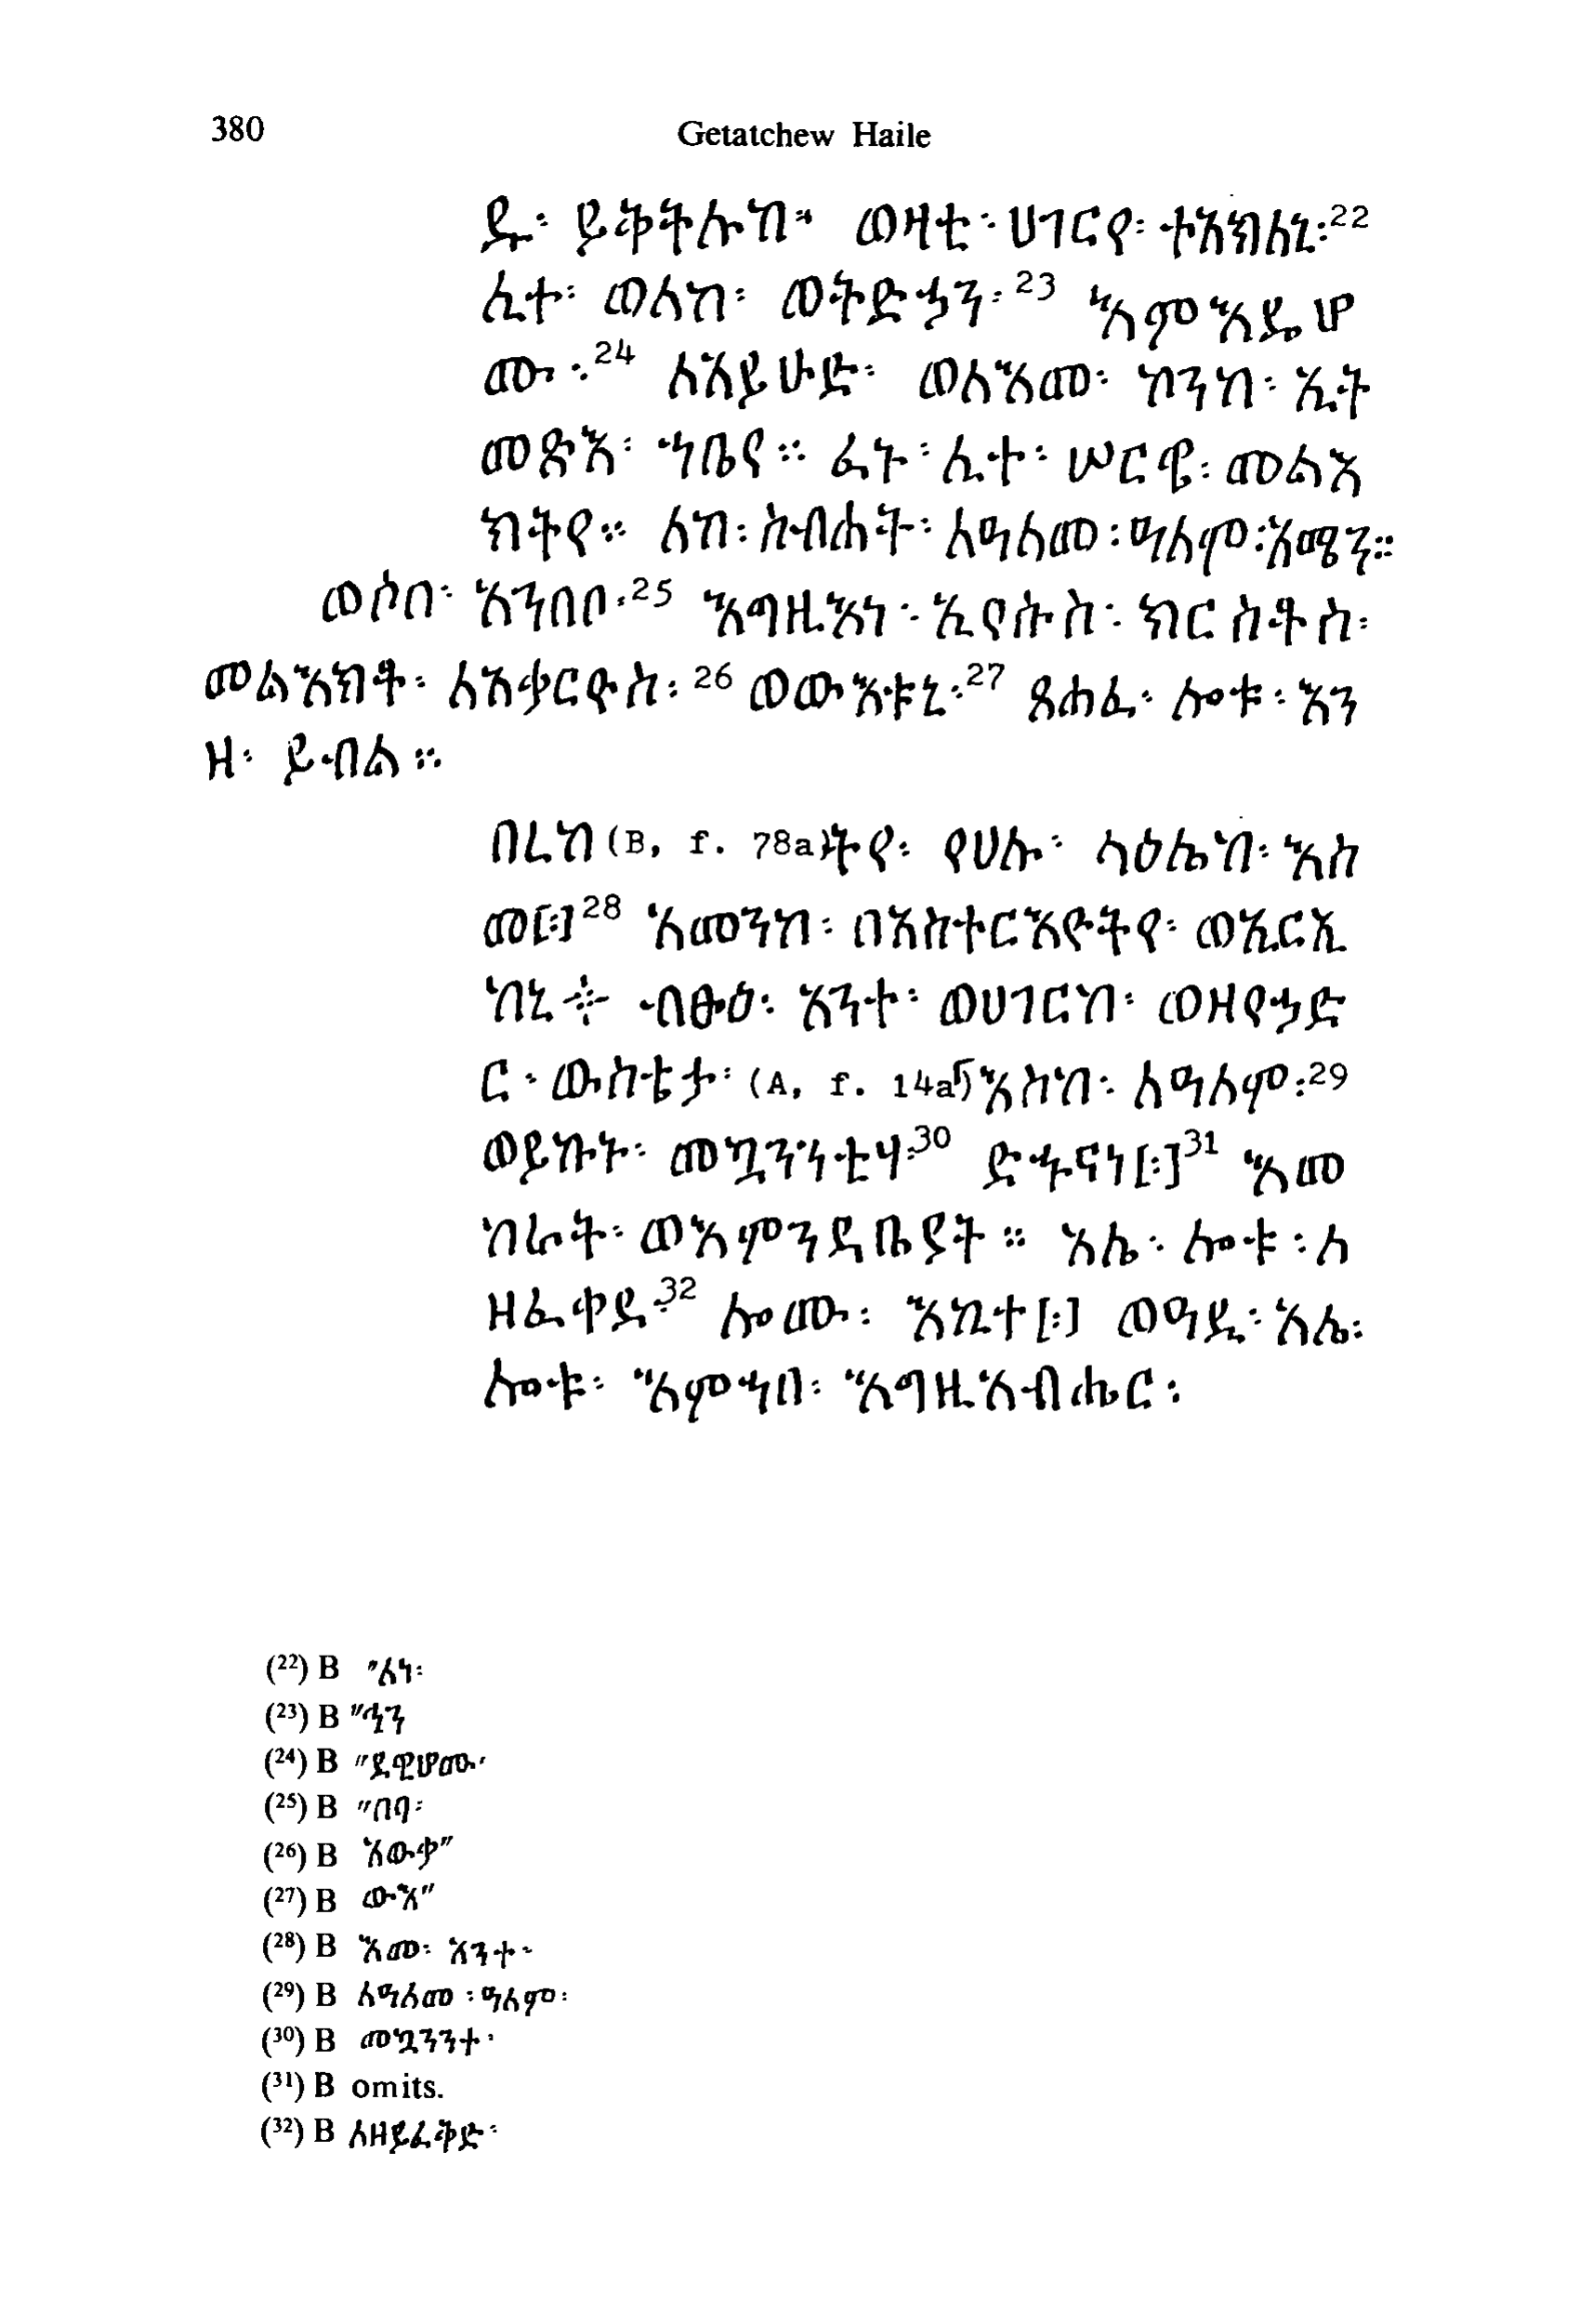 380
Getatchew Haile
ዱ፡ ይቅትሉከ። ወዛቲ፡ ሀገርየ፡ ተአክለኒ፡22
ሊተ፡ ወለከ፡ ወትድኃን፡23 እምእዴሆ
ሙ፡24 ለአይሁድ፡ ወለእመ፡ ኮንከ፡ ኢት
መጽእ፡ ኀቤየ። ፈኑ፡ ሊተ፡ ሠርዌ፡ መልእ
ክትየ። ለከ፡ ስብሐት፡ ለዓለመ፡ ዓለም፡ አሜን።
ወሶበ፡ አንበቦ፡25 እግዚእነ፡ ኢየሱስ፡ ክርስቶስ፡
መልእክቶ፡ ለአቃርዮስ፡26 ወውእቱኒ፡27 ጸሐፈ፡ ሎቱ፡ እን
ዘ፡ ይብል።
በረከ(B, f. 78a)ትየ፡ የሀሉ፡ ላዕሌከ፡ እስ
መ[፡]28 አመንከ፡ በአስተርእዮትየ፡ ወኢርኢ
ከኒ ። ብፁዕ፡ አንተ፡ ወሀገርከ፡ ወዘየኃድ
ር፡ ውስቴታ፡ (A, f. 14a) እስከ፡ ለዓለም፡29
ወይኩኑ፡ መኳንንቲሃ፡30 ድኁናነ[፡]31 እመ
ከራት፡ ወእምንዳቤያት። አሌ፡ ሎቱ፡ ለ
ዘፈቀደ፡32 ሎሙ፡ እኪተ[፡] ወዓዲ፡ አሌ፡
ሎቱ፡ እምኀበ፡ እግዚአብሔር፡
(22) B "ለነ፡
(23) B "ኅን
(24) B "ደዊሆሙ፡
(25) B "በባ፡
(26) B አውቃ"
(27) B ውእ"
(28) B እመ፡ አንተ፡
(29) B ለዓለመ፡ ዓለም፡
(30) B መኳንንተ፡
(31) B omits.
(32) B ለዘይፈቅድ፡